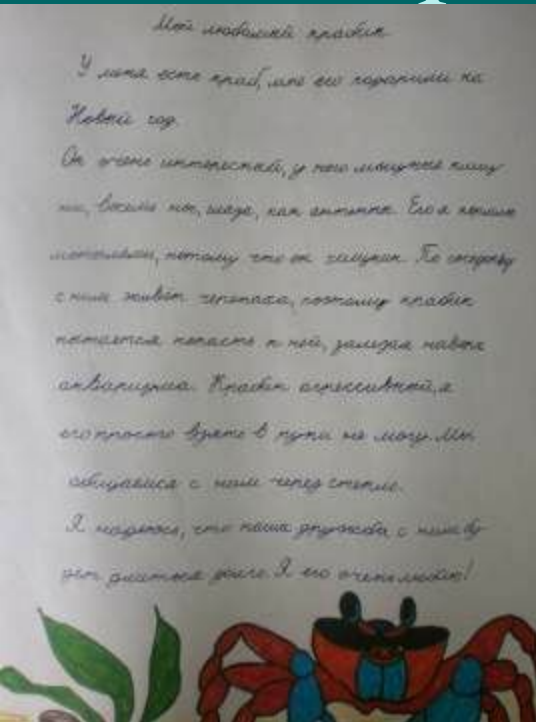 Мой любимый крабик
У меня есть краб, мне его подарили на
Новый год.
Он очень интересный, у него мощные клеш
ни, восемь ног, глаза, как антенны. Его я кормлю
мотылём, потому что он хищник. По соседству
с ним живёт черепаха, поэтому крабик
пытается попасть к ней, залезая наверх
аквариума. Крабик агрессивный, я
его просто взять в руки не могу. Мы
общаемся с ним через стекло.
Я надеюсь, что наша дружба с ним бу
дет длиться долго. Я его очень люблю!